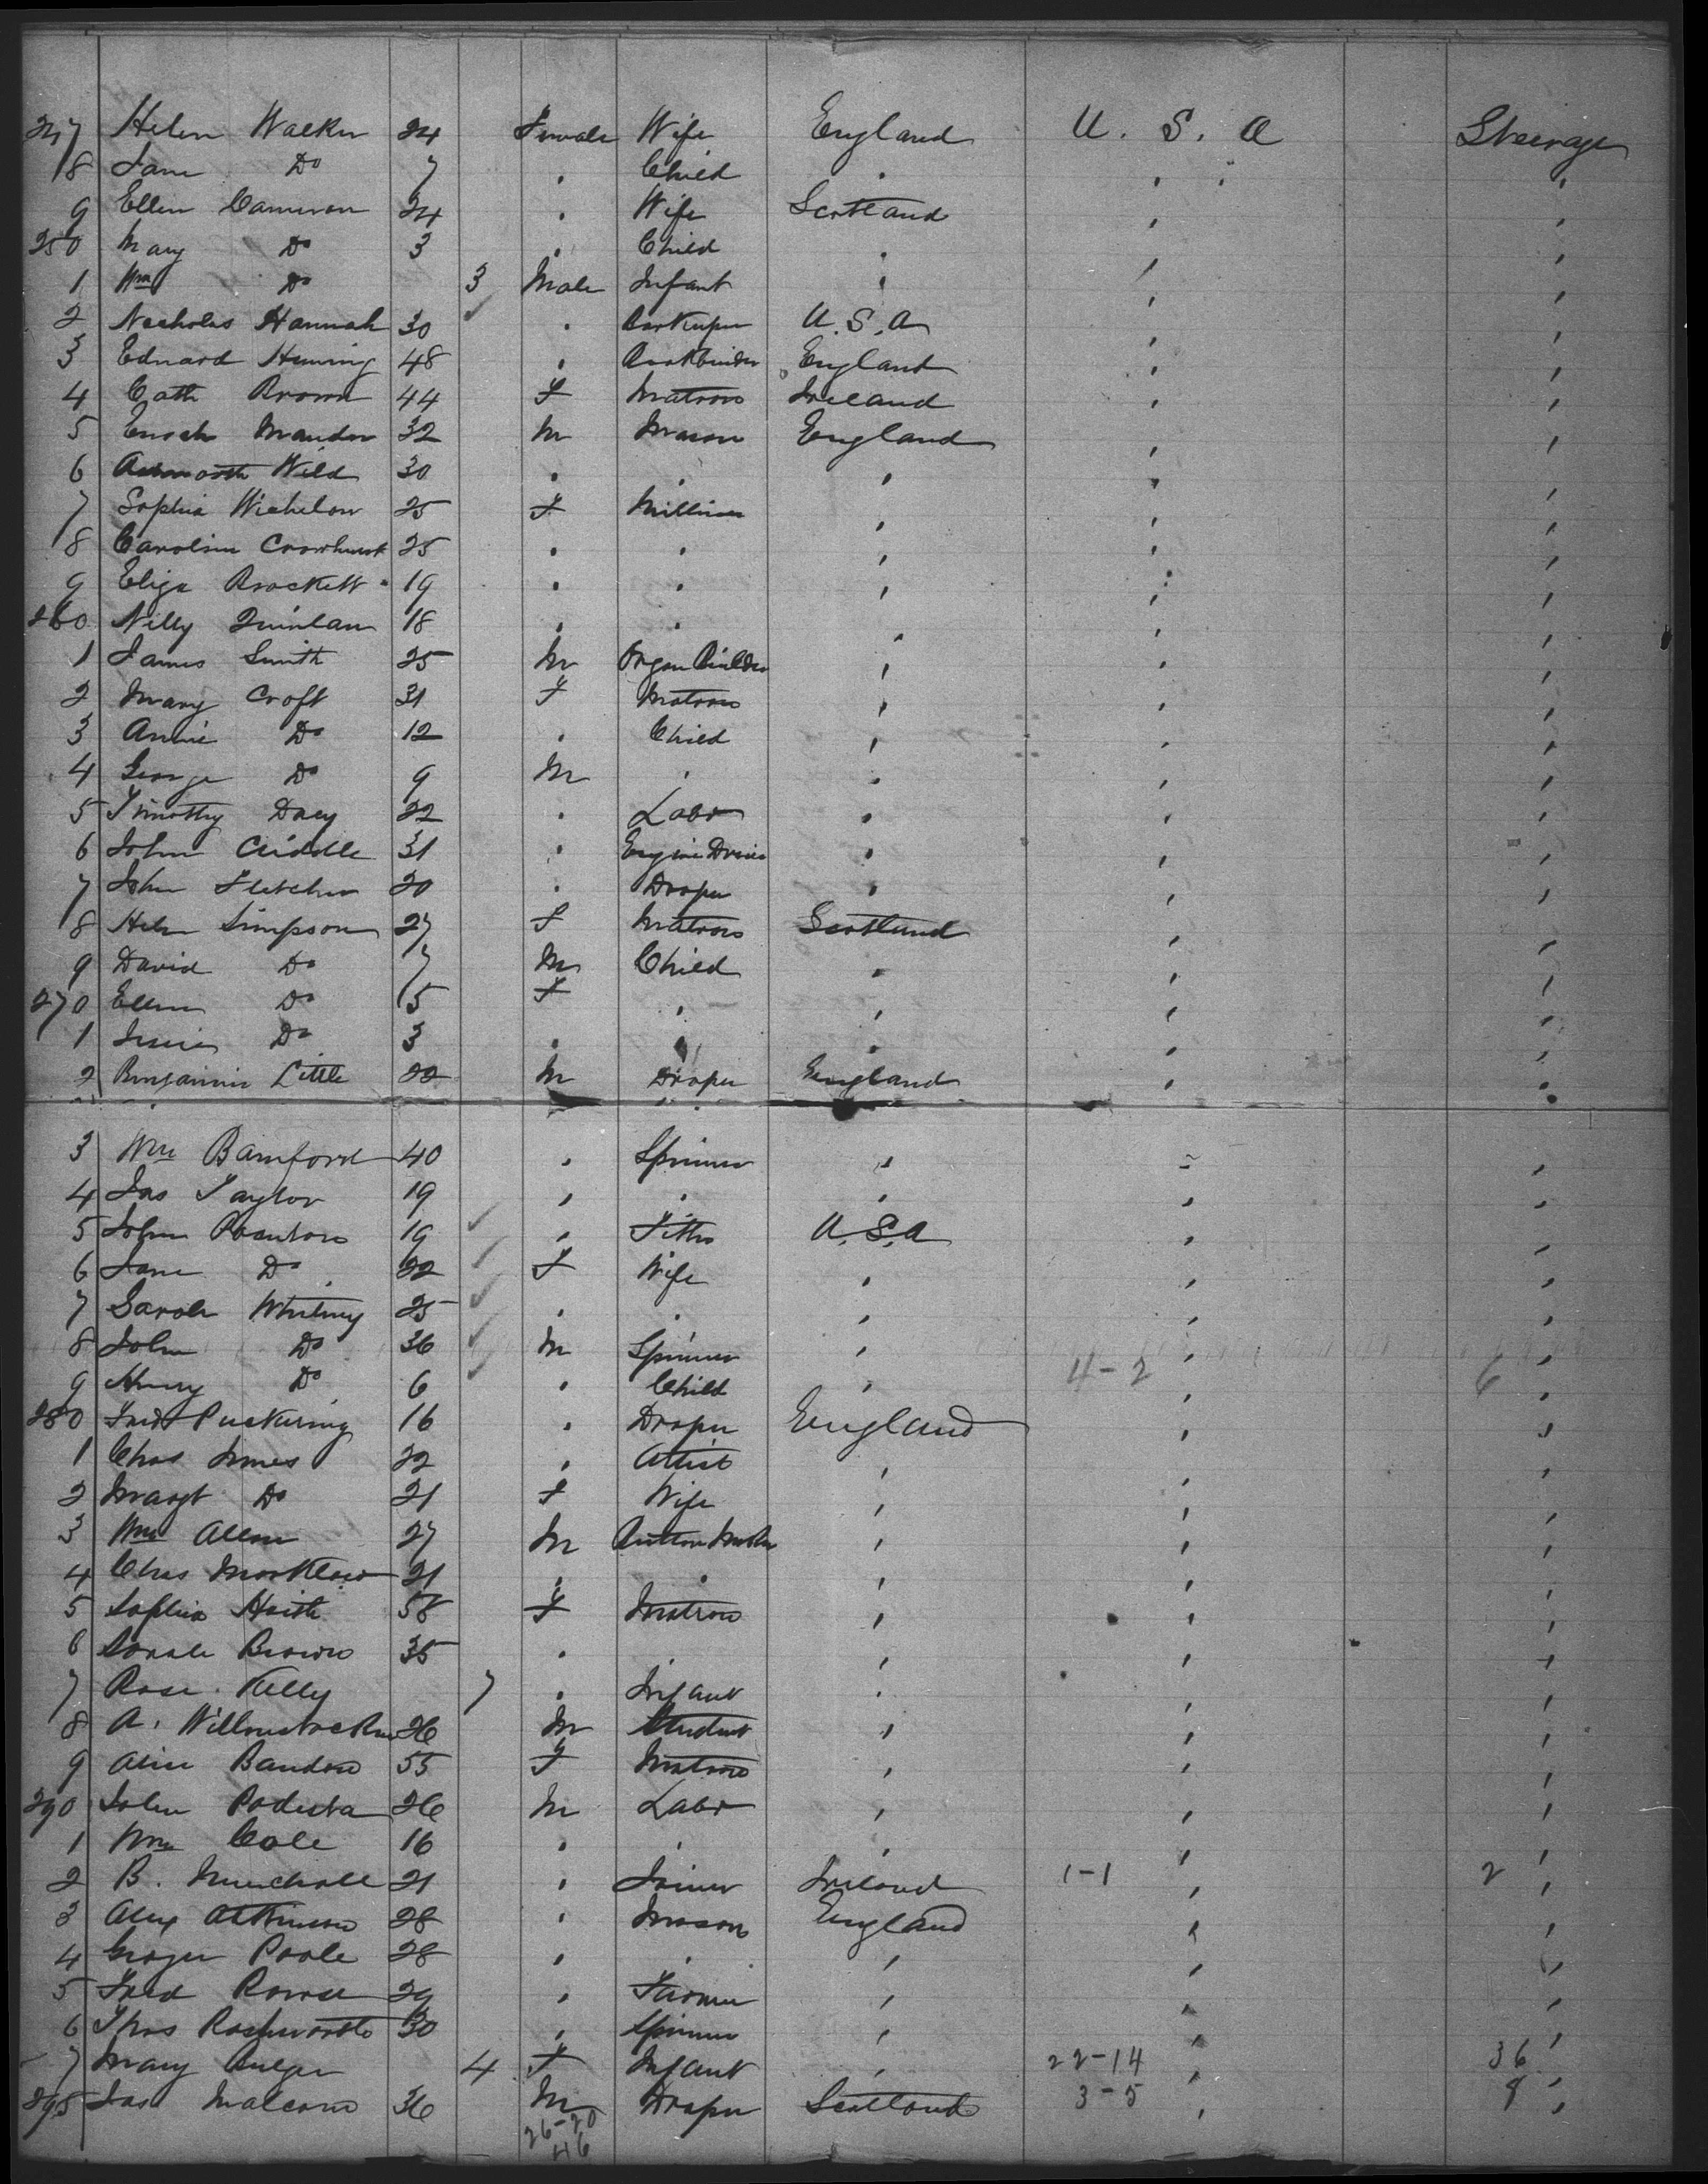 247 Helen Walker 24 Female Wife England U. S. A Steerage
8 Jane Do 7 " Child " " " "
9 Ellen Cameron 24 " Wife Scotland " "
250 Mary Do 3 " Child " " "
1 Wm Do 3 Male Infant " " "
2 Nicholas Hannah 30 " Barkeeper U.S.A " "
3 Edward Huming 48 " Bookbinder England " "
4 Cath Brown 44 F Matron Ireland " "
5 Enoch Maudor 32 M Mason England " "
6 Wild 30 " " " " "
7 Sophia Wichelow 25 F Milliner " " "
8 Caroline Crowhurst 25 " " " " "
9 Eliza Brockett 19 " " " " "
260 Nelly Quinlan 18 " " " " "
1 James Smith 25 M Organ Builder " " "
2 Mary Croft 31 F Matron " " "
3 Annie Do 12 " Child " " "
4 George Do 9 M " " " "
5 Timothy Dacy 22 " Labr " " "
6 John Criddle 31 " Engine Driver " " "
7 John Fletcher 20 " Draper " " "
8 Helen Simpson 27 F Matron Scotland " "
9 David Do 7 M Child " " "
270 Ellen Do 5 F " " " "
1 Do 3 " " " " "
2 Benjamin Little 22 M Draper England " "
3 Wm Bamford 40 " Spinner " " "
4 Jas Taylor 19 " " " " "
5 John 19 " Fitter U.S.A " "
6 Jane Do 22 F Wife " " "
7 Sarah Whitney 25 " " " " "
8 John Do 36 M Spinner " " "
9 Henry Do 6 " Child " 4-2 " 6 "
280 Fredk Puckering 16 " Draper England " "
1 Chas Innes 22 " Artist " " "
2 Margt Do 21 F Wife " " "
3 Wm Allen 27 M Button Maker " " "
4 Chas 21 " " " " "
5 Sophia Haith 58 F Matron " " "
6 Sarah Brown 35 " " " " "
7 Rose Kelly 7 " Infant " " "
8 A. 26 M Student " " "
9 Alice 55 F Matron " " "
290 John Podesta 26 M Labr " " "
1 Wm Cole 16 " " " " "
2 B. 21 " Joiner Ireland 1-1 " 2 "
3 Alex Atkinson 28 " Mason England " "
4 Poole 28 " " " " "
5 Fred 29 " Farmer " " "
6 Thos 30 " Spinner " " "
7 Mary Bulger 4 F Infant " 22-14 " 36 "
298 Jas Malcom 36 M Draper Scotland 3-5 " 8 "
26-20
46